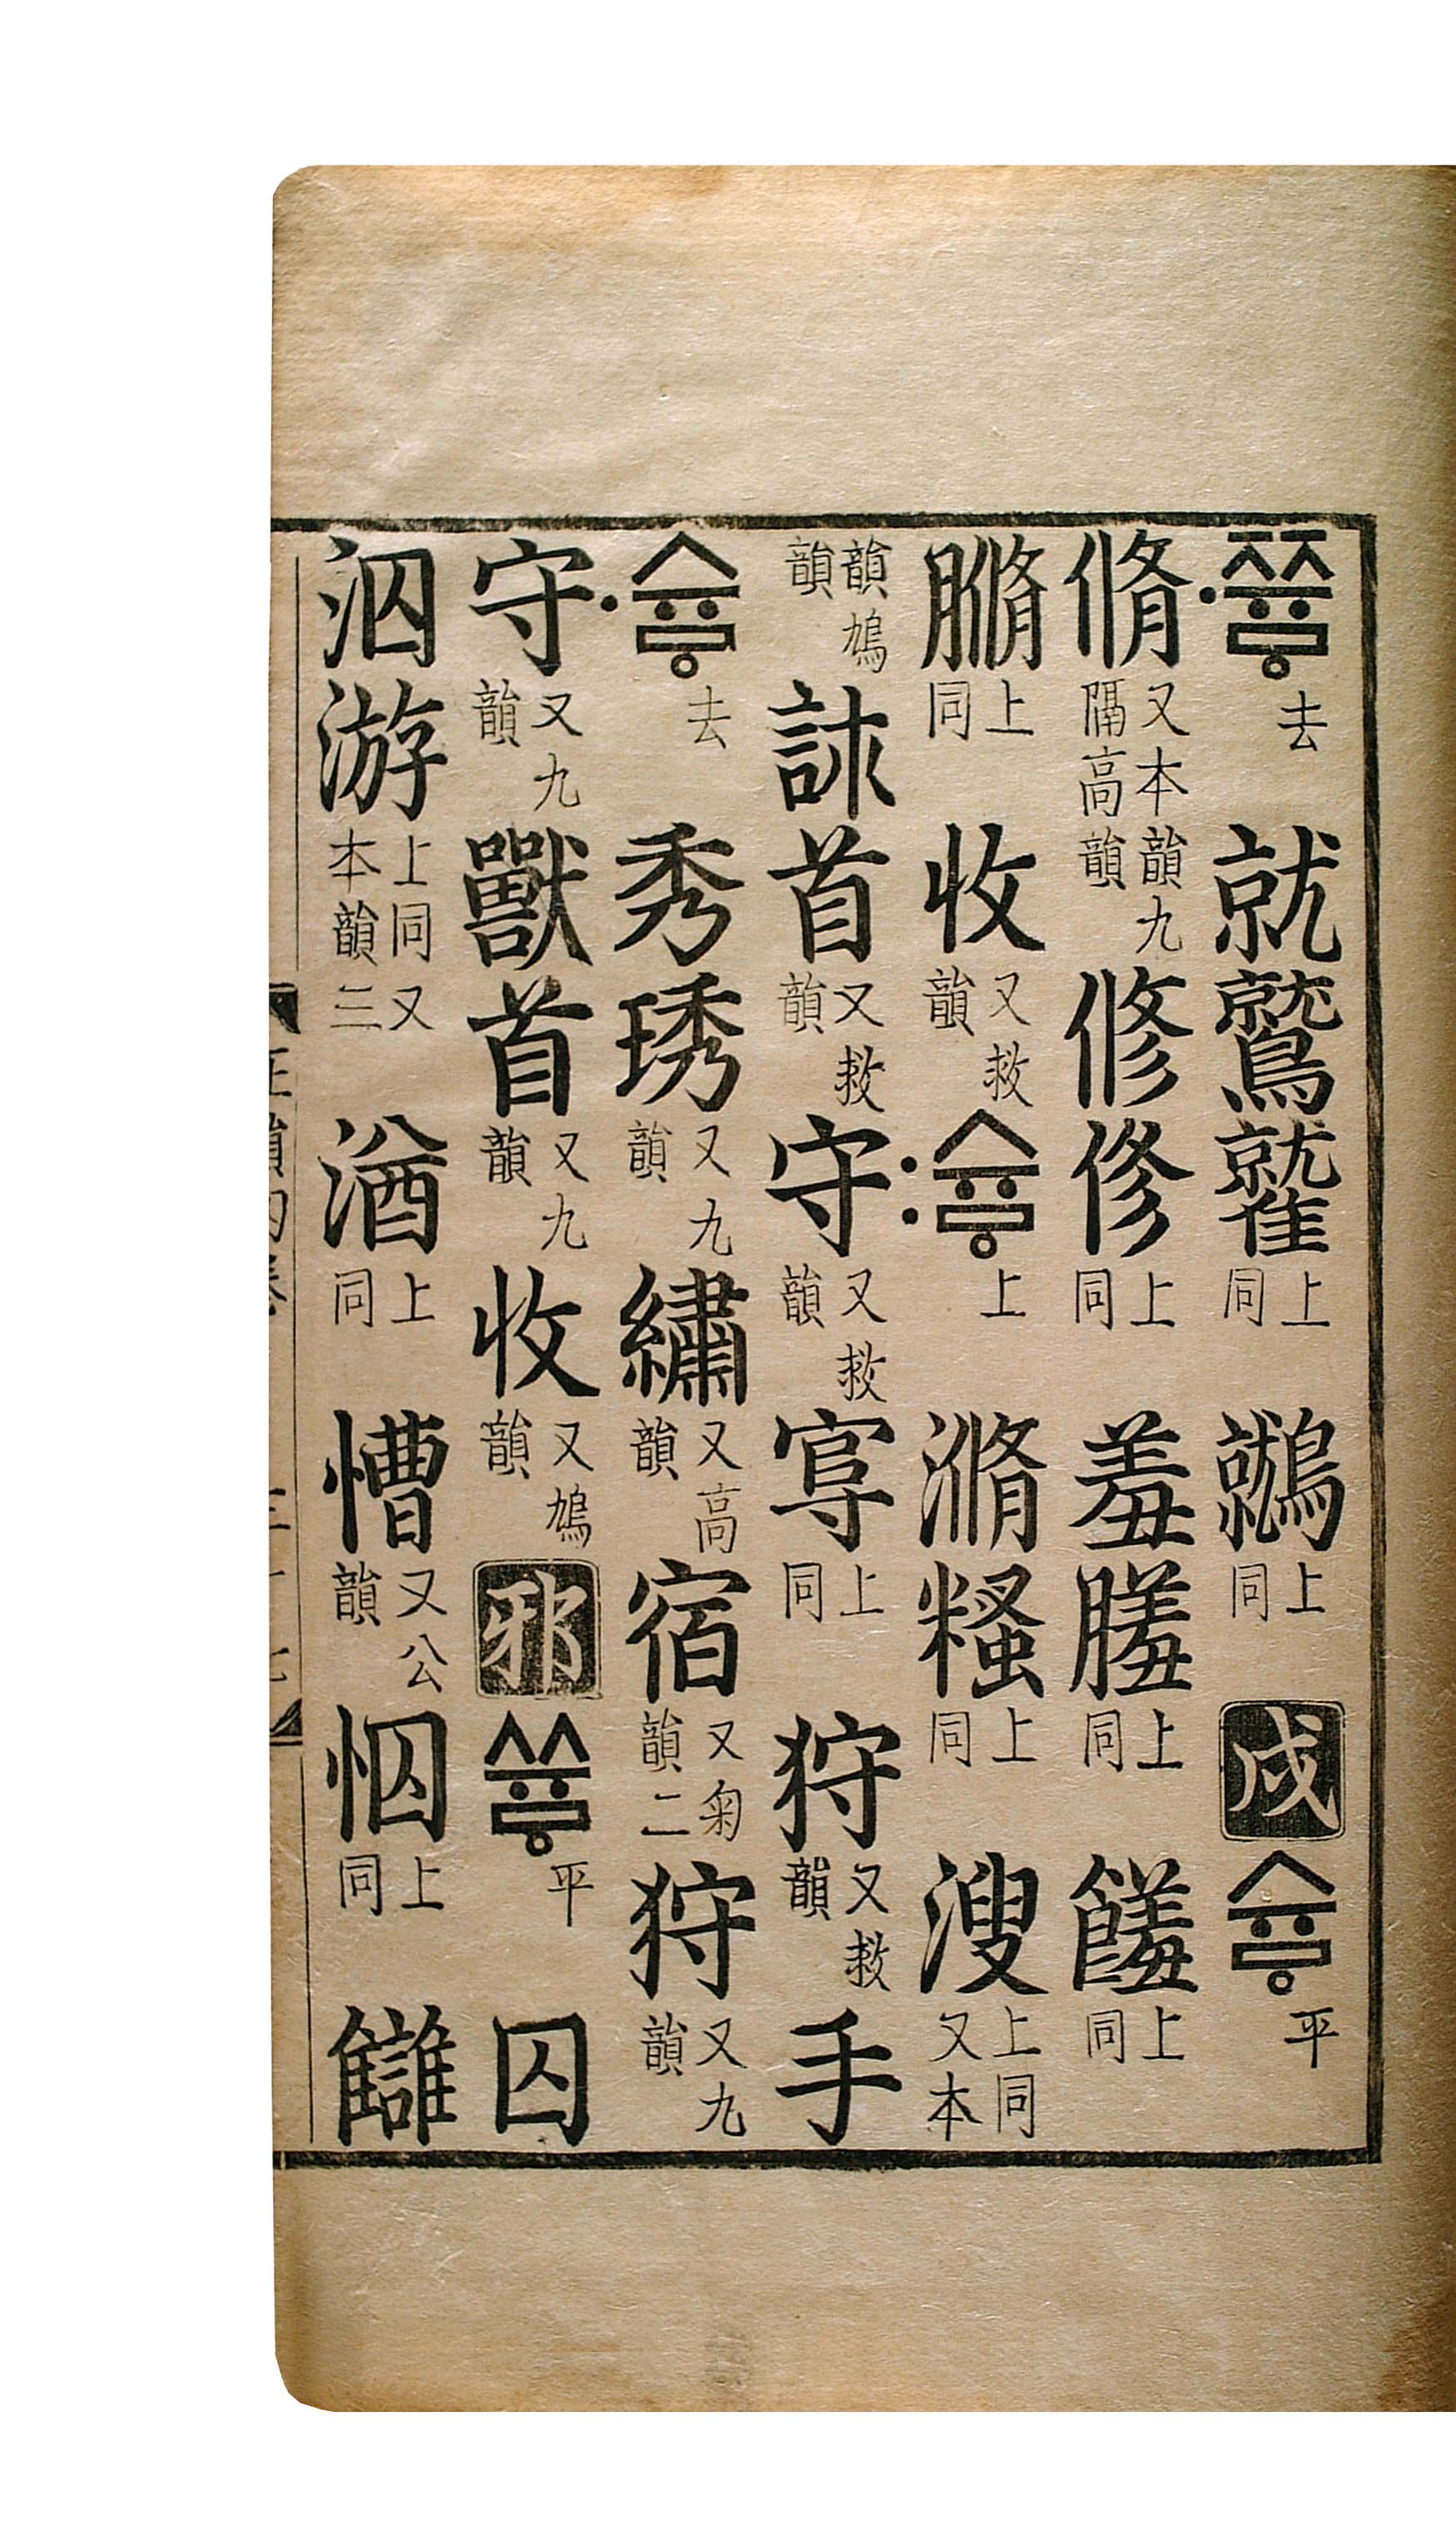 〮쮸ᇢ去就鷲上同上同戌슈ᇢ平
脩又本韻九隔高韻修俢上同羞上同饈上同
上同收又救韻〯슈ᇢ上滫上同溲上同又本
韻鳩韻訹首又救韻守又救韻上同狩又救韻手
〮슈ᇢ去秀琇又九韻繡又高韻宿又菊韻二狩又九韻
守又九韻獸首又九韻收又鳩韻邪쓔ᇢ平囚
泅游上同又本韻三湭上同慒又公韻上同